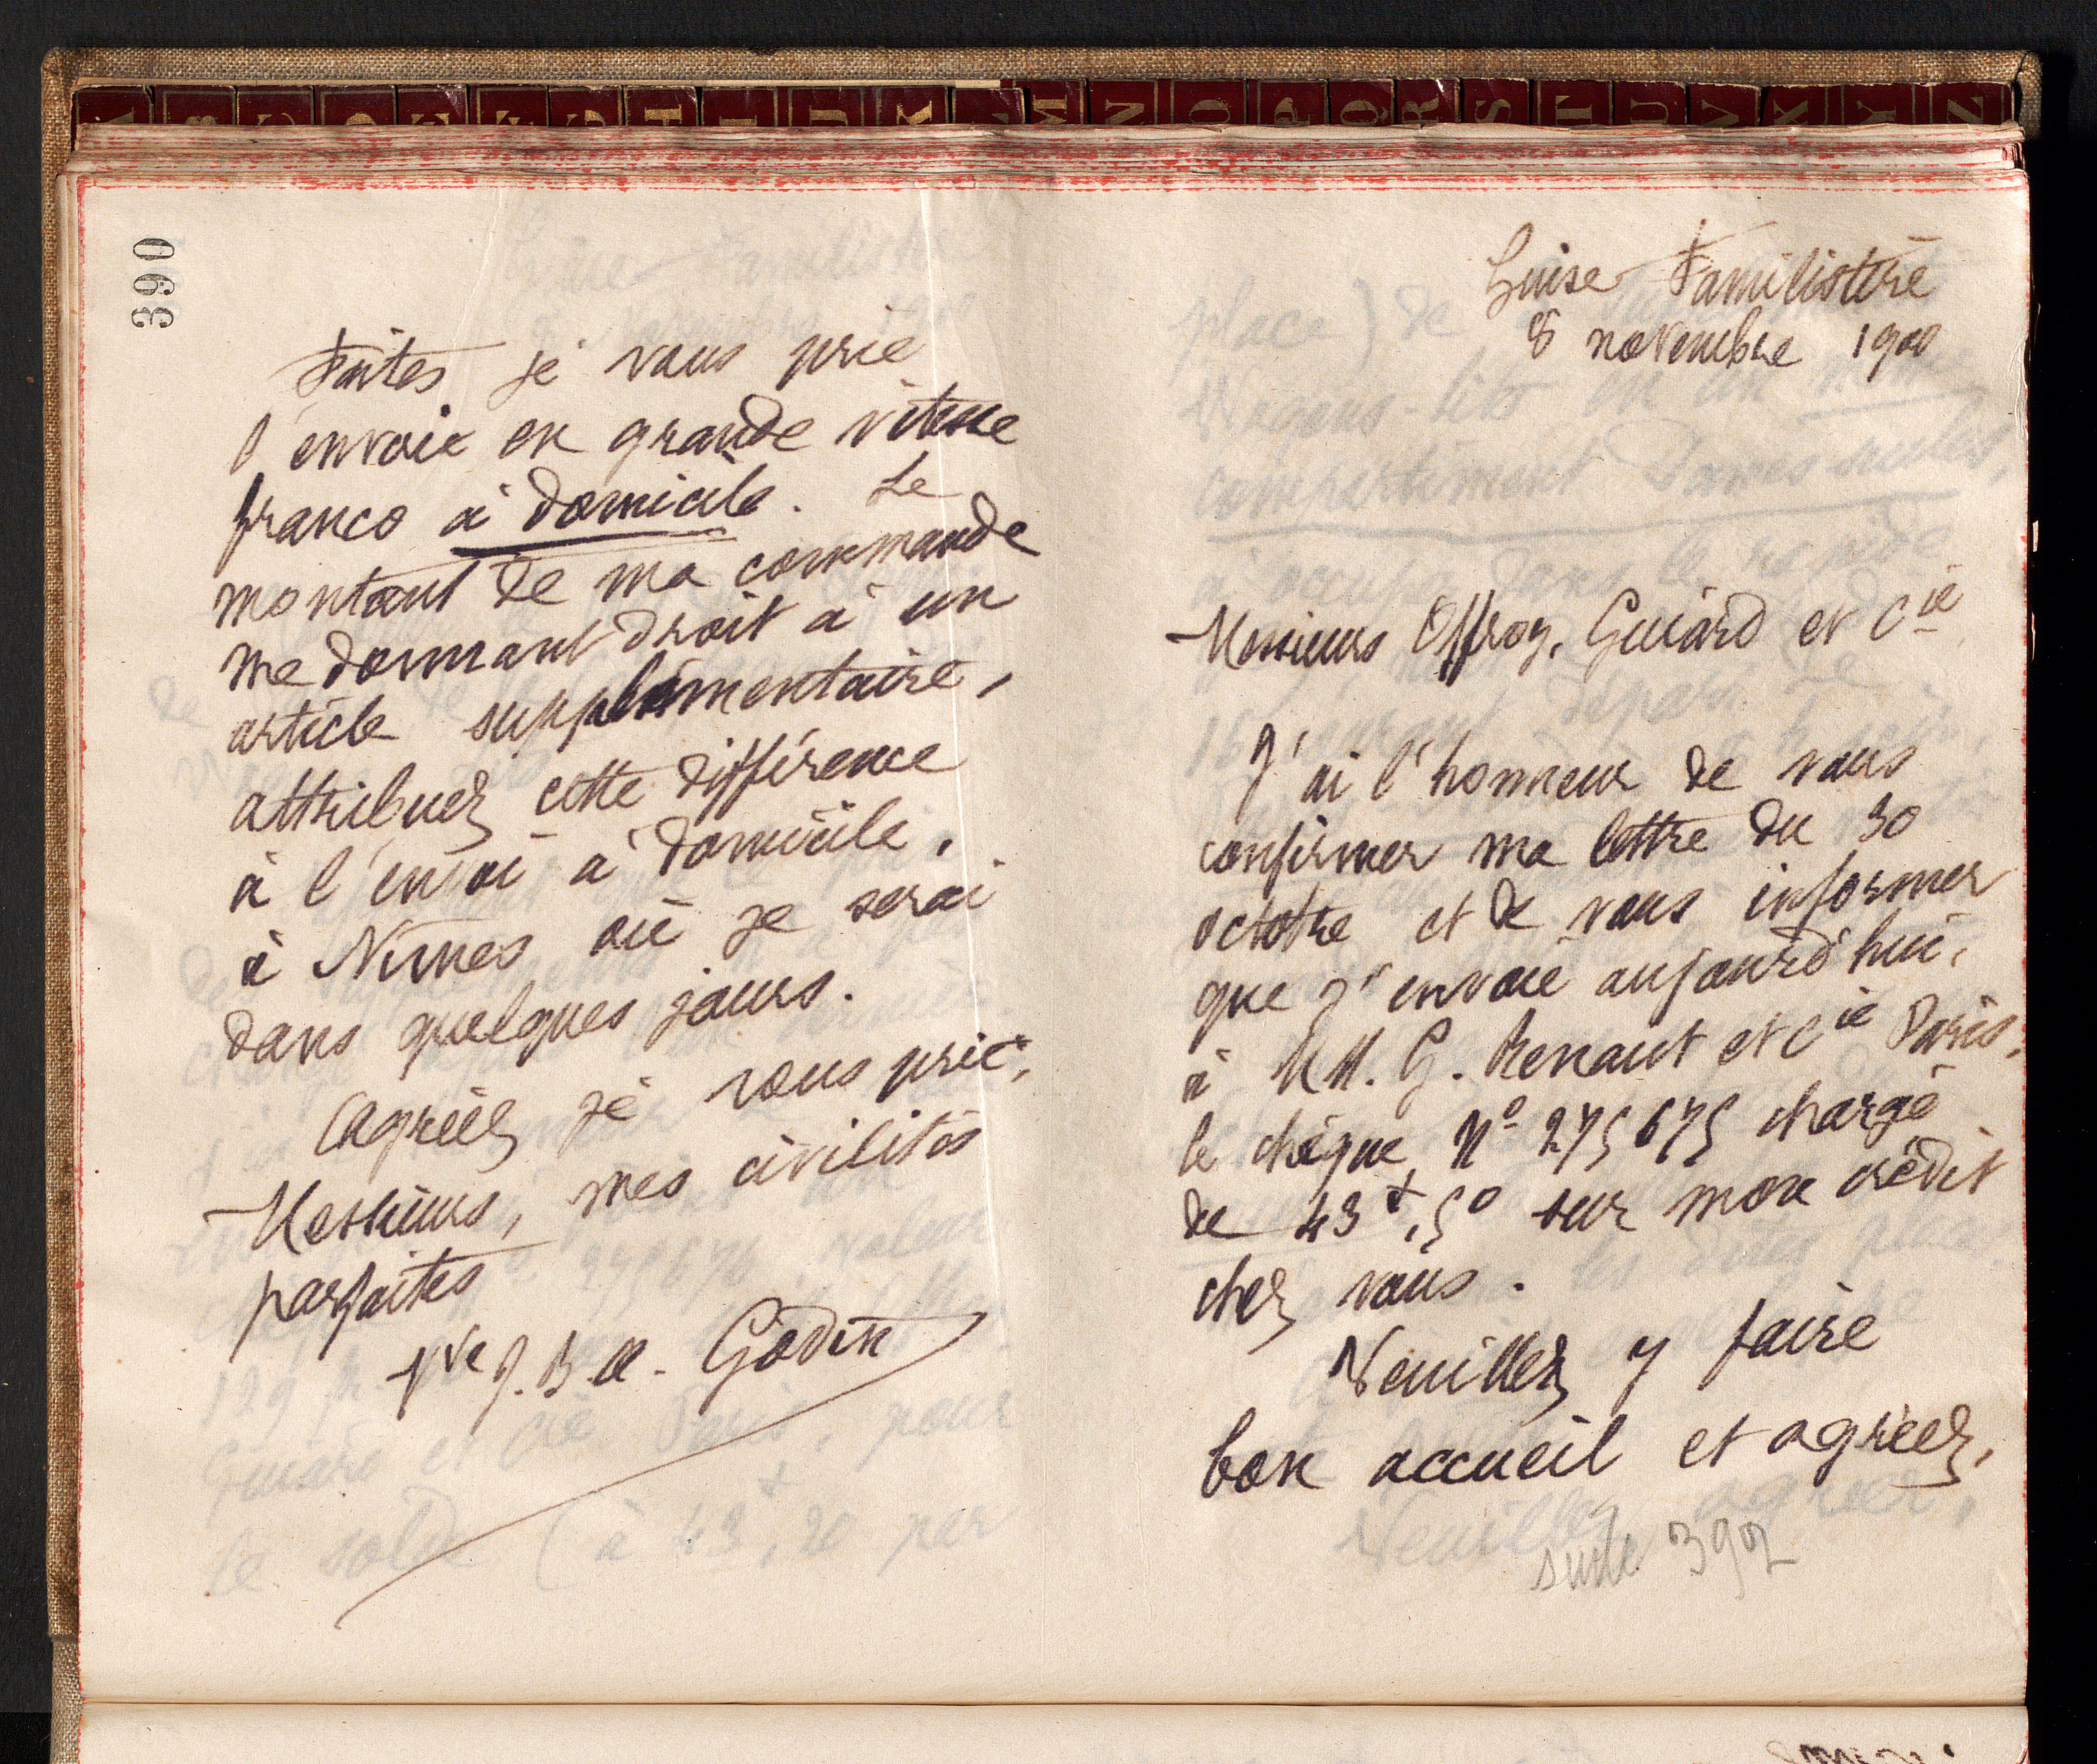 A B C D E F G H I J K L M N O P Q R S T U V X Y Z
390
Faites je vous prie
l'envoie en grande vitesse
franco à domicile. Le
montant de ma commande
me donnant droit à un
article supplémentaire,
attribuez cette différence
à l'envoi à domicile,
à Nîmes où je serai
dans quelques jours.
Agréez je vous prie,
Messieurs, mes civilités
parfaites
Vve J. B. A. Godin
Guise Familistère
8 novembre 1900
Messieurs Offroy, Guiard et Cie
J'ai l'honneur de vous
confirmer ma lettre du 30
octobre et de vous informer
que j'envoie aujourd'hui,
à MM. G. Renaut et Cie Paris,
le chèque, No 275675 chargé
de 43f,50 sur mon crédit
chez vous.
Veuillez y faire
bon accueil et agréez,
suite 392